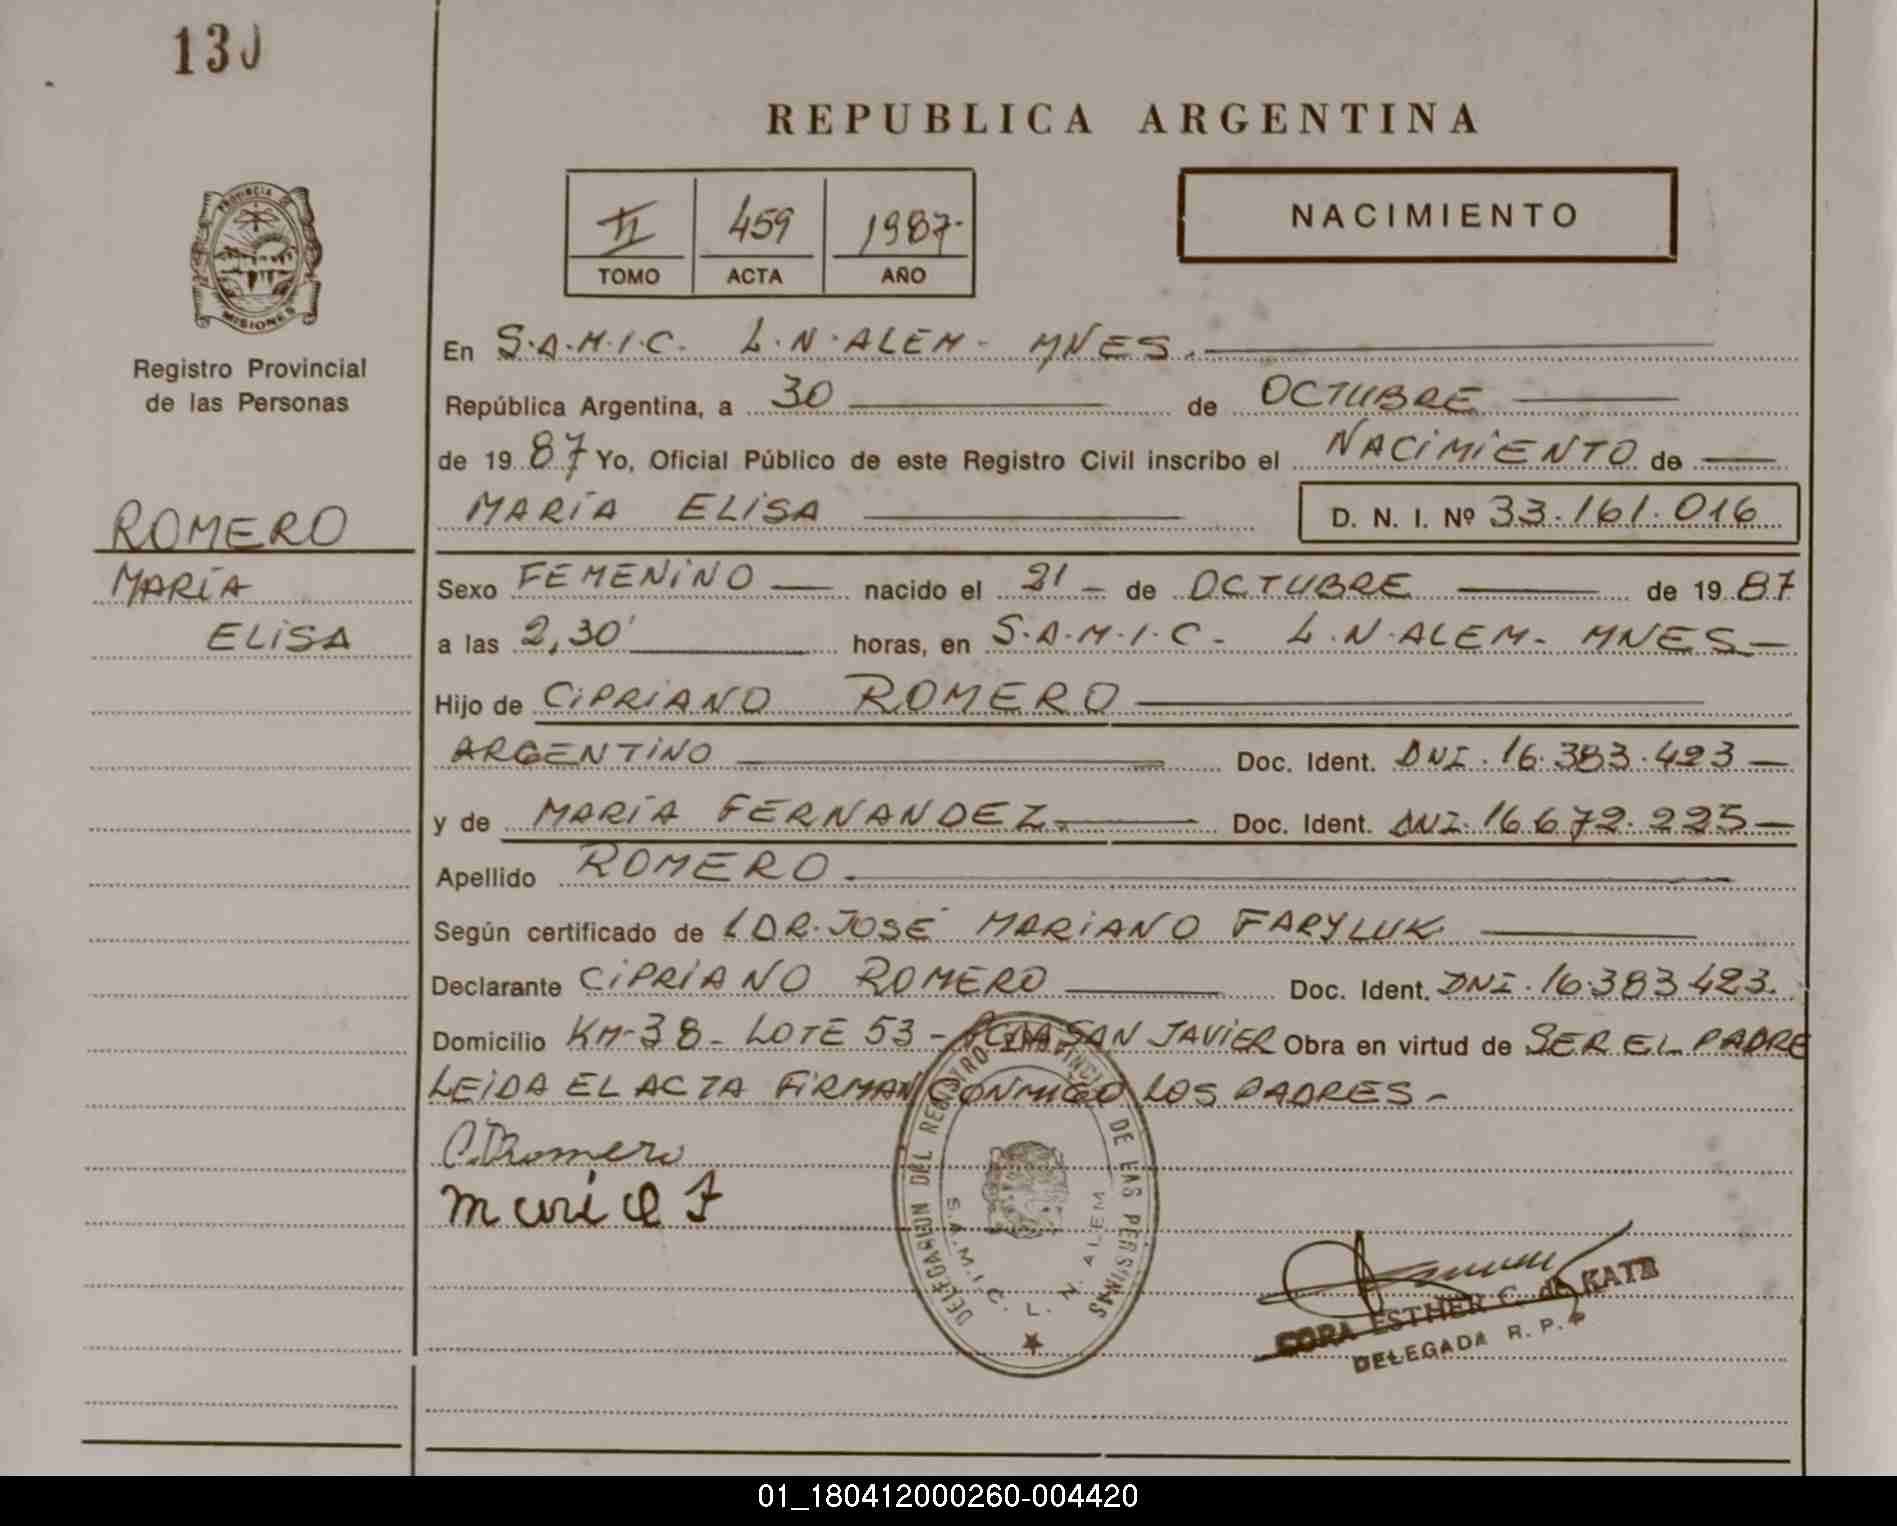 130
REPUBLICA ARGENTINA
II 459 1987-
TOMO ACTA AÑO
NACIMIENTO
PROVINCIA DE
MISIONES
Registro Provincial
de las Personas
En S.A.M.I.C. L.N.ALEM- MNES.
República Argentina, a 30 de OCTUBRE
de 1987 Yo, Oficial Público de este Registro Civil inscribo el NACIMIENTO de
MARÍA ELISA D. N. I. Nº 33.161.016
ROMERO
MARÍA
ELISA
Sexo FEMENINO nacido el 21 - de OCTUBRE de 1987
a las 2,30' horas, en S.A.M.I.C- L.N.ALEM- MNES-
Hijo de CIPRIANO ROMERO
ARGENTINO Doc. Ident. DNI.16.383.423-
y de MARÍA FERNANDEZ. Doc. Ident. DNI.16.672.225-
Apellido ROMERO.
Según certificado de DR.JOSÉ MARIANO FARYLUK
Declarante CIPRIANO ROMERO Doc. Ident. DNI.16.383.423.
Domicilio KM-38- LOTE 53- SAN JAVIER Obra en virtud de SER EL PADRE
LEIDA EL ACTA FIRMAN CONMIGO LOS PADRES-
C. Romero
maria F
DELEGACION DEL REGISTRO PROVINCIAL DE LAS PERSONAS
S.A.M.I.C. L. N. ALEM
CORA ESTHER C. de KATR
DELEGADA R. P. P
01_180412000260-004420